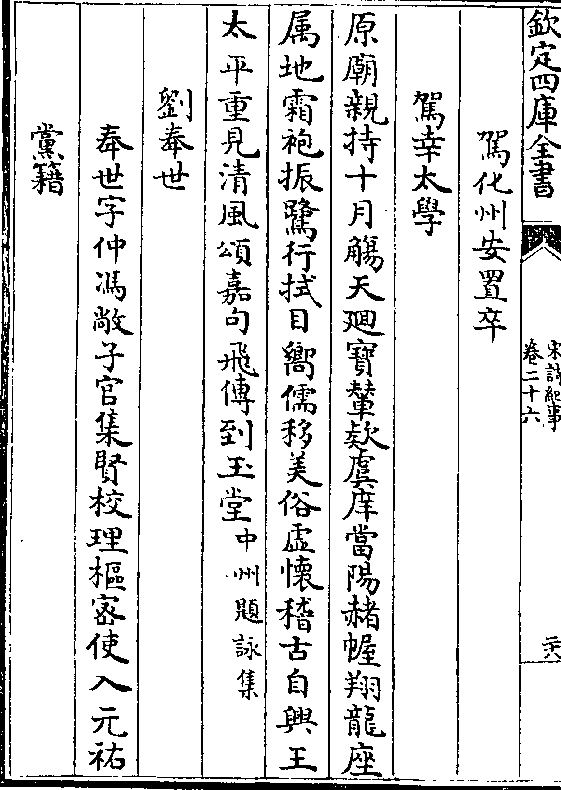 欽定四庫全書
宋詩紀事
卷二十六
駕化州安置卒
駕幸太學
原廟親持十月觴天廻寶輦欵虞庠當陽赭幄翔龍座
属地霜袍振鷺行拭目嚮儒移美俗虚懷稽古自興王
太平重見清風頌嘉句飛傳到玉堂中州題詠集
劉奉世
奉世字仲馮敞子官集賢校理樞宻使入元祐
黨籍